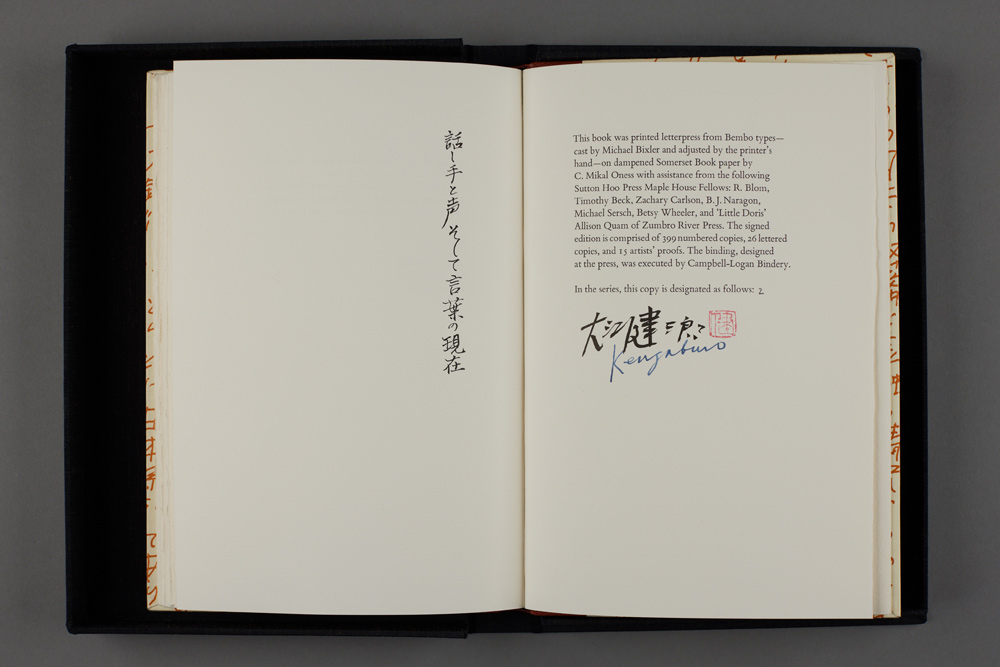 話し手と声そして言葉の現在
This book was printed letterpress from Bembo types—
cast by Michael Bixler and adjusted by the printer's
hand—on dampened Somerset Book paper by
C. Mikal Oness with assistance from the following
Sutton Hoo Press Maple House Fellows: R. Blom,
Timothy Beck, Zachary Carlson, B. J. Naragon,
Michael Sersch, Betsy Wheeler, and 'Little Doris'
Allison Quam of Zumbro River Press. The signed
edition is comprised of 399 numbered copies, 26 lettered
copies, and 15 artists' proofs. The binding, designed
at the press, was executed by Campbell-Logan Bindery.
In the series, this copy is designated as follows: 2
大江健三郎
Kenzaburo